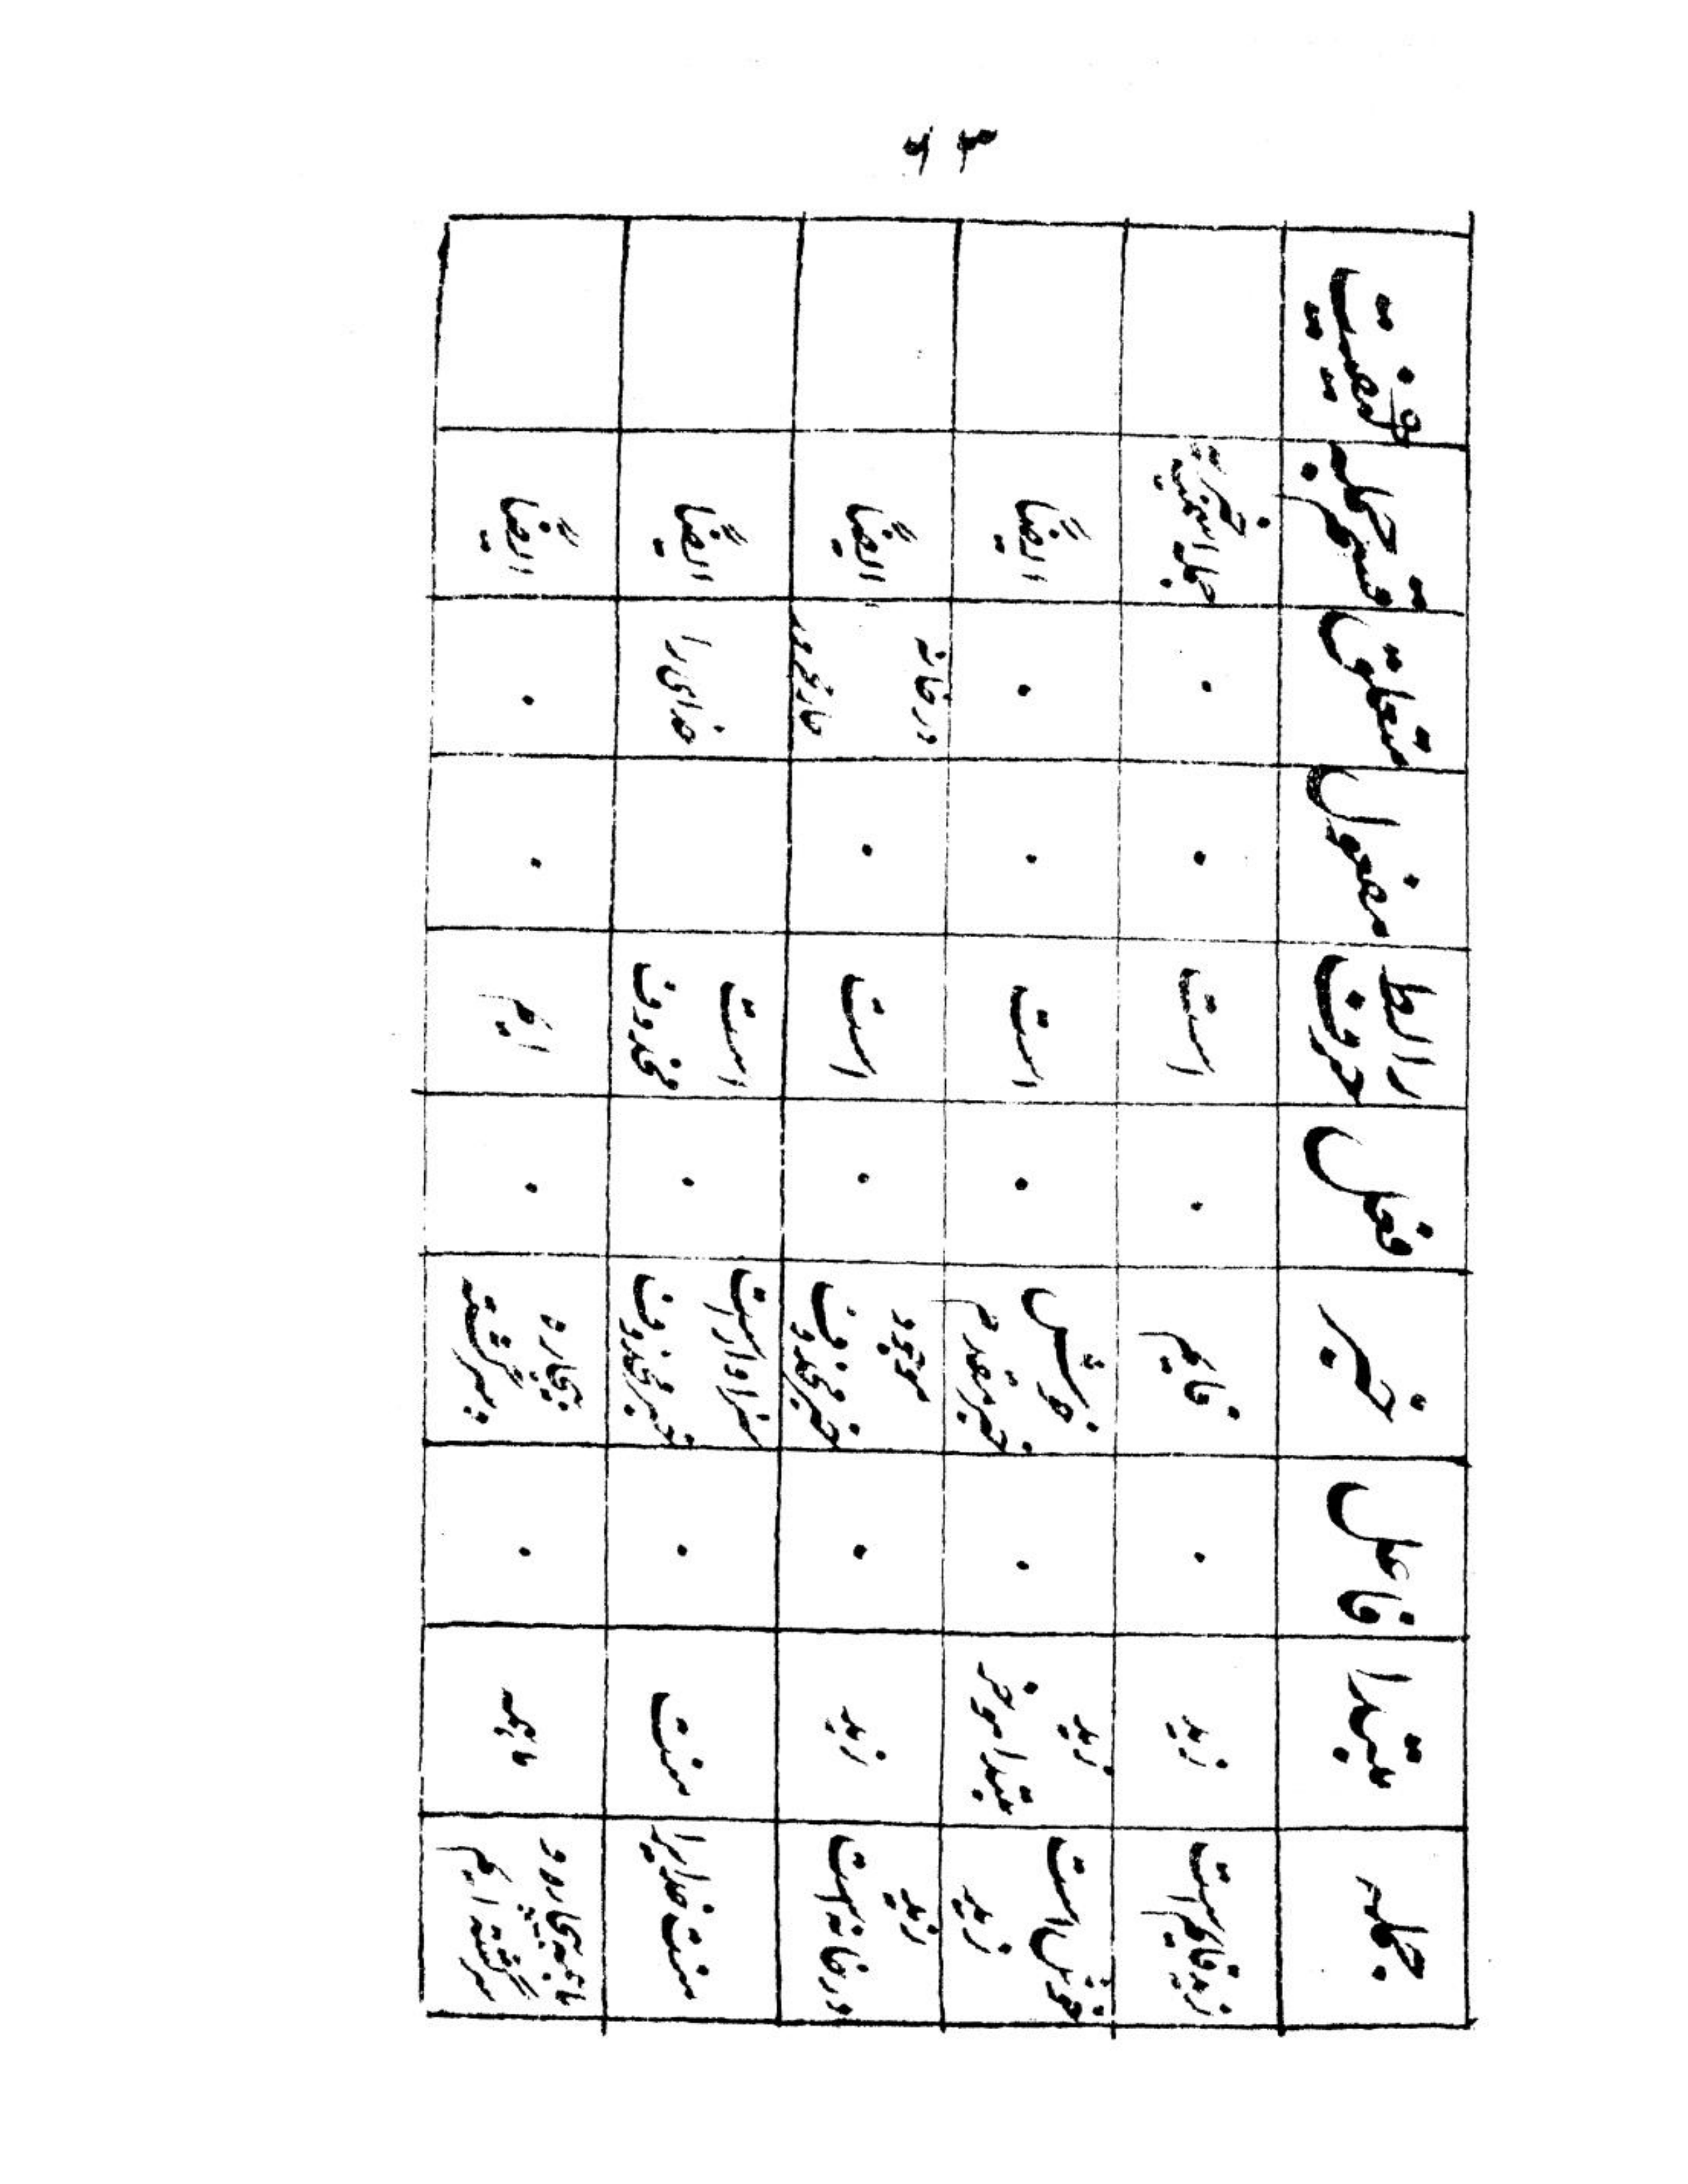 جمله مبتدا فاعل خبر فعل حرف رابط مفعول متعلق قسم جمله کیفیت
زید قایم است زید ۰ قایم ۰ است ۰ ۰ جمله اسمیه خبریه
خوش است زید زید مبتدا موخر ۰ خوش خبر مقدم ۰ است ۰ ۰ ایضاً
زید در خانه است زید ۰ موجود خبر محذوف ۰ است ۰ در خانه ایضاً
منت خدایرا منت ۰ سزاوار است خبر محذوف ۰ است محذوف خدای را ایضاً
ما همه بیچاره و سرگشته ایم ما همه ۰ بیچاره سرگشته ۰ ایم ۰ ۰ ایضاً